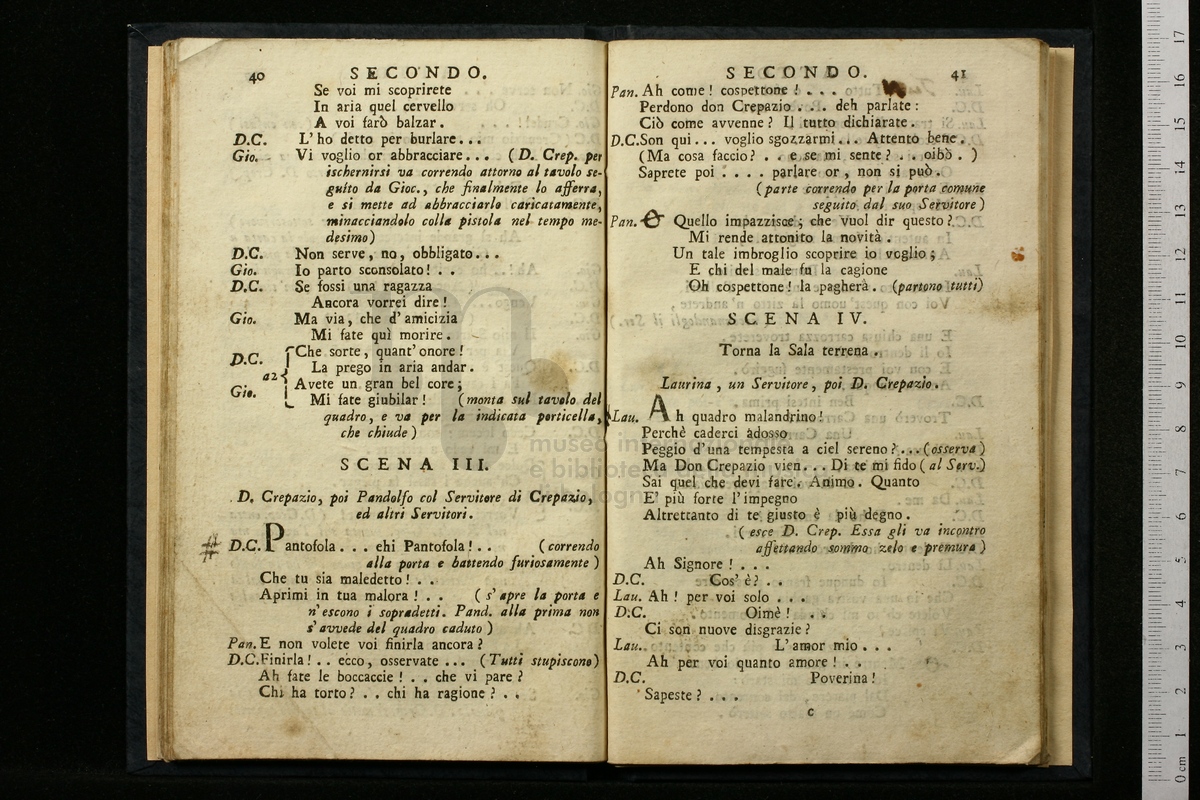 40 SECONDO.
Se voi mi scoprirete
In aria quel cervello
A voi farò balzar.
D.C. L'ho detto per burlare...
Gio. Vi voglio or abbracciare... (D. Crep. per
ischernirsi va correndo attorno al tavolo se-
guito da Gioc., che finalmente lo afferra,
e si mette ad abbracciarlo caricatamente,
minacciandolo colla pistola nel tempo me-
desimo)
D.C. Non serve, no, obbligato...
Gio. Io parto sconsolato! . .
D.C. Se fossi una ragazza
Ancora vorrei dire!
Gio. Ma via, che d'amicizia
Mi fate quì morire.
D.C. Che sorte, quant'onore!
La prego in aria andar.
a2
Gio. Avete un gran bel core;
Mi fate giubilar! (monta sul tavolo del
quadro, e va per la indicata porticella,
che chiude)
SCENA III.
D. Crepazio, poi Pandolfo col Servitore di Crepazio,
ed altri Servitori.
# D.C. Pantofola... ehi Pantofola! . . (correndo
alla porta e battendo furiosamente)
Che tu sia maledetto! . .
Aprimi in tua malora! . . (s'apre la porta e
n'escono i sopradetti. Pand. alla prima non
s'avvede del quadro caduto)
Pan. E non volete voi finirla ancora?
D.C. Finirla! . . ecco, osservate ... (Tutti stupiscono)
Ah fate le boccaccie! . . che vi pare?
Chi ha torto? . . chi ha ragione? . .
SECONDO. 41
Pan. Ah come! cospettone! . . .
Perdono don Crepazio ... deh parlate:
Ciò come avvenne? Il tutto dichiarate.
D.C. Son qui... voglio sgozzarmi... Attento bene.
(Ma cosa faccio? . . e se mi sente? . . oibò. )
Saprete poi . . . . parlare or, non si può.
(parte correndo per la porta comune
seguito dal suo Servitore)
Pan. Quello impazzisce; che vuol dir questo?
Mi rende attonito la novità.
Un tale imbroglio scoprire io voglio;
E chi del male fu la cagione
Oh cospettone! la pagherà. (partono tutti)
SCENA IV.
Torna la Sala terrena.
Laurina, un Servitore, poi D. Crepazio.
Lau. Ah quadro malandrino!
Perchè caderci adosso
Peggio d'una tempesta a ciel sereno?...(osserva)
Ma Don Crepazio vien... Di te mi fido (al Serv.)
Sai quel che devi fare. Animo. Quanto
E' più forte l'impegno
Altrettanto di te giusto è più degno.
(esce D. Crep. Essa gli va incontro
affettando sommo zelo e premura)
Ah Signore! . . .
D.C. Cos' è? . .
Lau. Ah! per voi solo . . .
D.C. Oimè! . .
Ci son nuove disgrazie?
Lau. L'amor mio . . .
Ah per voi quanto amore! . .
D.C. Poverina!
Sapeste? . . .
C
museo internazionale
e biblioteca della musica
di bologna
0 cm 1 2 3 4 5 6 7 8 9 10 11 12 13 14 15 16 17